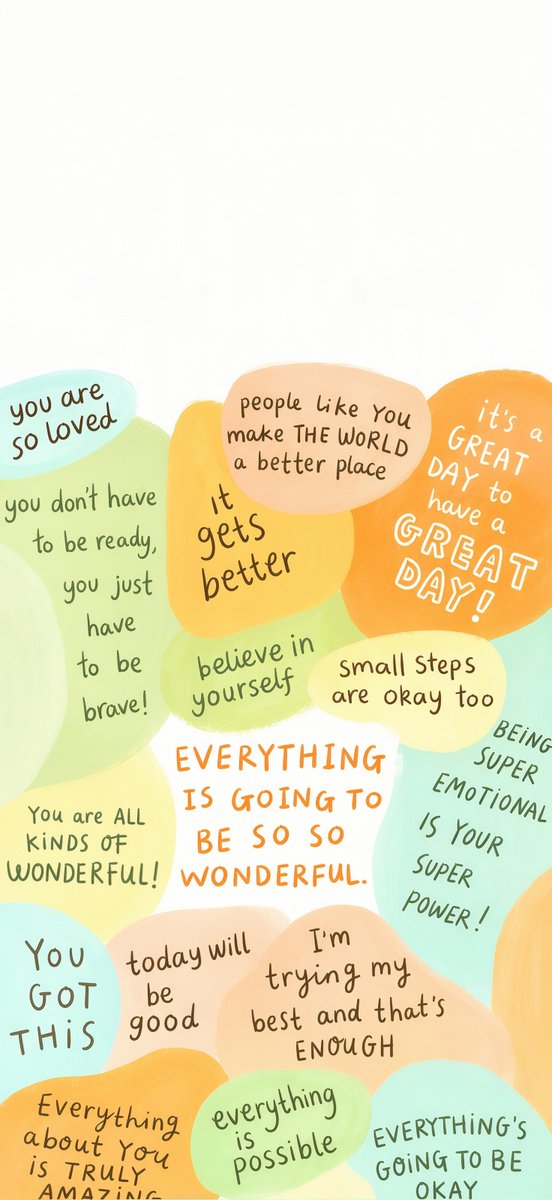 you are
so loved
people like You
make THE WORLD
a better place
it's a
GREAT
DAY to
have a
GREAT
DAY!
you don't have
to be ready,
you just
have
to be
brave!
it
gets
better
believe in
yourself
small steps
are okay too
EVERYTHING
IS GOING TO
BE SO SO
WONDERFUL.
BEING
SUPER
EMOTIONAL
IS YOUR
SUPER
POWER!
You are ALL
KINDS OF
WONDERFUL!
YOU
GOT
THIS
today will
be
good
I'm
trying my
best and that's
ENOUGH
Everything
about You
is TRULY
AMAZING
everything
is
possible
EVERYTHING'S
GOING TO BE
OKAY